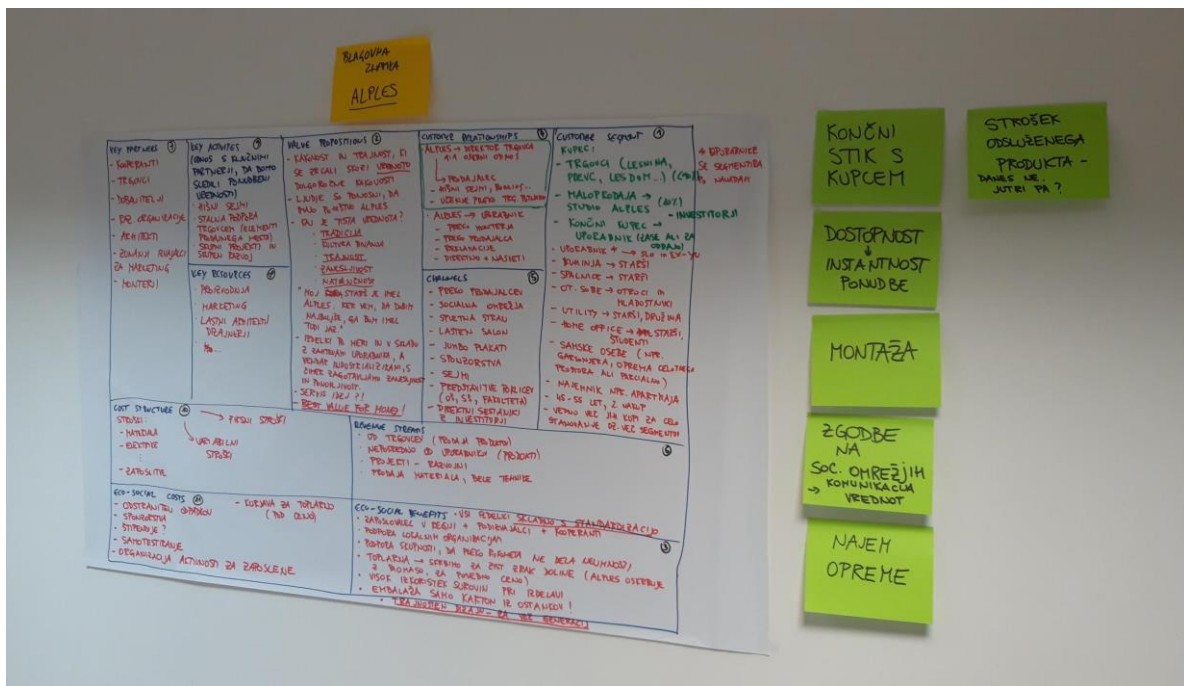 BLAGOVNA
ZNAMKA
ALPLES
KEY PARTNERS 7
- KOOPERANTI
- TRGOVCI
- DOBAVITELJI
- DR. ORGANIZACIJE
- ARHITEKTI
- ZUNANJI IZVAJALCI
ZA MARKETING
- MONTERJI
KEY ACTIVITES
(ODNOS S KLJUČNIMI
PARTNERJI, DA BOMO
SLEDILI PONUDBENI
VREDNOSTI)
- HIŠNI SEJMI
- STALNA PODPORA
TRGOVCEM (ELEMENTI
PRODAJNEGA MESTA)
- SKUPNI PROJEKTI IN
SKUPEN RAZVOJ
KEY RESOURCES
PROIZVODNJA
MARKETING
LASTNI ARHITEKTI
DIZAJNERJI
VALUE PROPOSITIONS 2
- KAKOVOST IN TRAJNOST, KI
SE ZRCALI SKOZI VREDNOTO
DOLGOROČNE KAKOVOSTI
- LJUDJE SO PONOSNI, DA
IMAJO POHIŠTVO ALPLES
- KAJ JE TISTA VREDNOTA?
TRADICIJA
KULTURA BIVANJA
TRAJNOST
ZANESLJIVOST
NATANČNOST
ALPLES. KER VEM, DA DOBIM
NAJBOLJŠE, GA BOM IMEL
TUDI JAZ."
- IZDELKI PO MERI IN V SKLADU
Z ZAHTEVAMI UPORABNIKA, A
VENDAR INDUSTRIALIZIRANI, S
ČIMER ZAGOTAVLJAMO ZANESLJIVOST
IN PONOVLJIVOST.
- SERVIS IDEJ?!
- BEST VALUE FOR MONEY!
CUSTOMER RELATIONSHIPS 4
- ALPLES → DIREKTOR TRGOVCA
1:1 OSEBNI ODNOS
→ PRODAJALEC
- HIŠNI SEJMI,
- ALPLES → UPORABNIK
- PREKO MONTERJA
- PREKO PRODAJALCA
- REKLAMACIJE
- DIREKTNO + NASVETI
CHANNELS 3
- PREKO PRODAJALCEV
- SOCIALNA OMREŽJA
- SPLETNA STRAN
- LASTEN SALON
- JUMBO PLAKATI
- SPONZORSTVA
- SEJMI
(OŠ, SŠ, FAKULTETA)
- DIREKTNI SESTANKI
Z INVESTITORJI
CUSTOMER SEGMENT 1
KUPEC:
- TRGOVCI (LESNINA,
PREVC, LESDOM...)
- MALOPRODAJA →
STUDIO ALPLES
- INVESTITORJI
- KONČNI KUPEC →
UPORABNIK (ZASE ALI ZA
ODDAJO)
→ UPORABNIKE
SE SEGMENTIRA
PO NAVADAH
- UPORABNIK → SLO IN EX-YU
- KUHINJA → STARŠI
- SPALNICE → STARŠI
- OT. SOBE → OTROCI IN
MLADOSTNIKI
- UTILITY → STARŠI, DRUŽINA
- HOME OFFICE → STARŠI,
ŠTUDENTI
- SAMSKE OSEBE (NPR.
GARSONJERA, OPREMA CELOTNEGA
PROSTORA ALI PARCIALNO)
- NAJEMNIK NPR. APARTMAJA
- 45-55 LET, 2. NAKUP
- VEDNO VEČ JIH KUPI ZA CELO
STANOVANJE OZ. VEČ SEGMENTOV
COST STRUCTURE 10
STROŠKI:
- MATERIALA
- ELEKTRIKE
- ZAPOSLITVE
→ FIKSNI STROŠKI
→ VARIABILNI
STROŠKI
REVENUE STREAMS 6
- OD TRGOVCEV (PRODAJA PRODUKTOV)
- NEPOSREDNO OD UPORABNIKOV (PRODUKTI)
- PROJEKTI - RAZVOJNI
- PRODAJA MATERIALA, BELE TEHNIKE
ECO-SOCIAL COSTS 11
- ODSTRANITEV ODPADKOV
- SPONZORSTVA
- ŠTIPENDIJE?
- SAMOTESTIRANJE
- ORGANIZACIJA AKTIVNOSTI ZA ZAPOSLENE
- KURJAVA ZA TOPLARNO
(POD CENO)
ECO-SOCIAL BENEFITS
• VSI IZDELKI SKLADNO S STANDARDIZACIJO
• ZAPOSLOVALEC V REGIJI + PODIZVAJALCI + KOOPERANTI
• PODPORA LOKALNIM ORGANIZACIJAM
• PODPORA SKUPNOSTI, DA PREKO POGUMA NE DELA NEUMNOSTI
• TOPLARNA → SKRBIMO ZA ČIST ZRAK DOLINE (ALPLES OSKRBUJE
Z BIOMASO. ZA POSEBNO CENO)
• VISOK IZKORISTEK SUROVIN PRI IZDELAVI
• EMBALAŽA SAMO KARTON IZ OSTANKOV!
• TRAJNOSTEN DIZAJN - ZA VEČ GENERACIJ
KONČNI
STIK S
KUPCEM
DOSTOPNOST
↓
INSTANTNOST
PONUDBE
MONTAŽA
ZGODBE
NA
SOC. OMREŽJIH
→ KOMUNIKACIJA
VREDNOT
NAJEM
OPREME
STROŠEK
ODSLUŽENEGA
PRODUKTA -
DANES NE.
JUTRI PA?